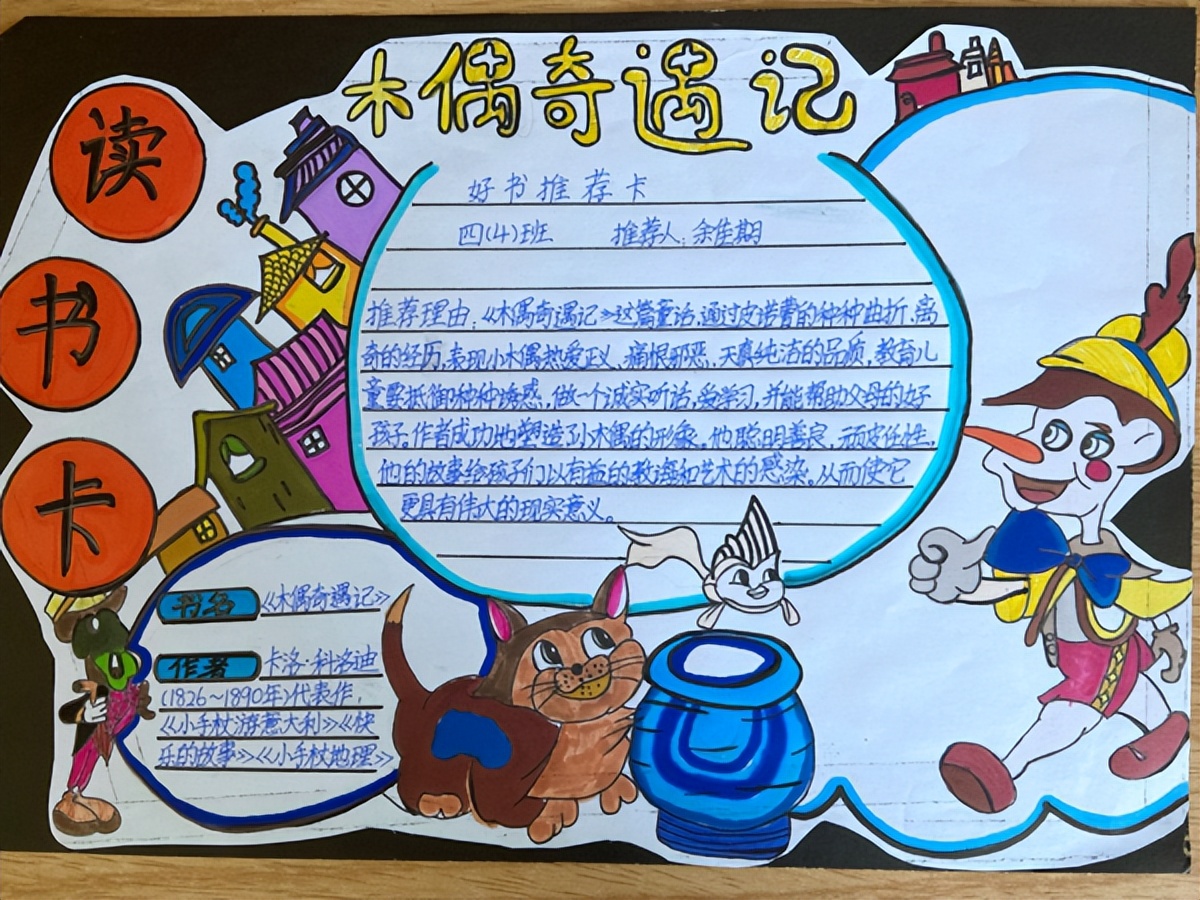 木偶奇遇记
读
书
卡
好书推荐卡
四(4)班 推荐人:余佳期
推荐理由:《木偶奇遇记》这篇童话,通过皮诺曹的种种曲折、离
奇的经历,表现小木偶热爱正义、痛恨邪恶、天真纯洁的品质,教育儿
童要抵御种种诱惑,做一个诚实听话、爱学习,并能帮助父母的好
孩子。作者成功地塑造了小木偶的形象,他聪明善良、顽皮任性,
他的故事给孩子们以有益的教诲和艺术的感染。从而使它
更具有伟大的现实意义。
书名 《木偶奇遇记》
作者 卡洛·科洛迪
(1826~1890年)代表作,
《小手杖游意大利》《快
乐的故事》《小手杖地理》